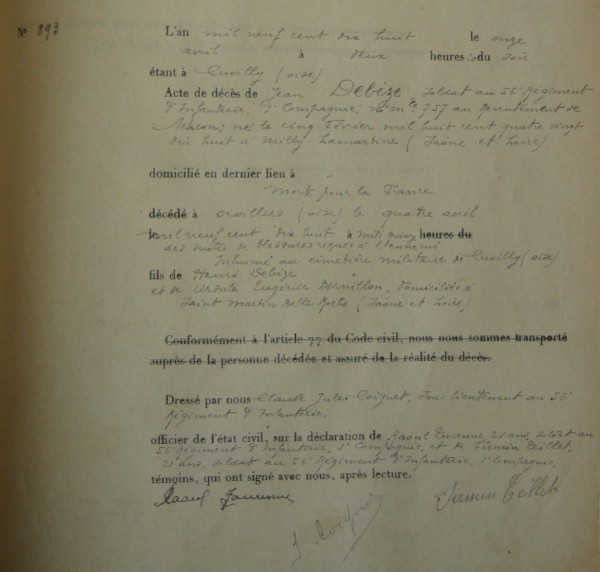 N° 893
L'an mil neuf cent dix huit le onze
avril à deux heures du soir
étant à Cuvilly (oise)
Acte de décès de Jean Debize soldat au 56e Régiment
d'Infanterie, Compagnie; 757 au Recrutement de
Macon; né le cinq Février mil huit cent quatre vingt
dix huit à Milly-Lamartine (Saône et Loire)
domicilié en dernier lieu à
Mort pour la France
décédé à orvillers (oise) le quatre avril
le mil neuf cent dix huit à heures du
des suites de blessures reçues à l'ennemi
Inhumé au cimetière militaire de Cuvilly (oise)
fils de Henri Debize
et de Ursule Eugénie domiciliés à
Saint Martin Belle Roche (Saône et Loire)
Conformément à l'article 77 du Code civil, nous nous sommes transporté
auprès de la personne décédée et assuré de la réalité du décès.
Dressé par nous Claude Jules Coignet, Sous lieutenant au 56e
Régiment d'Infanterie,
officier de l'état civil, sur la déclaration de Raoul 21 ans, soldat au
56e Régiment d'Infanterie, Compagnie, et de Firmin Teillet,
21 ans, soldat au 56e Régiment d'Infanterie, Compagnie,
témoins, qui ont signé avec nous, après lecture.
Raoul Firmin Teillet
J. Coignet